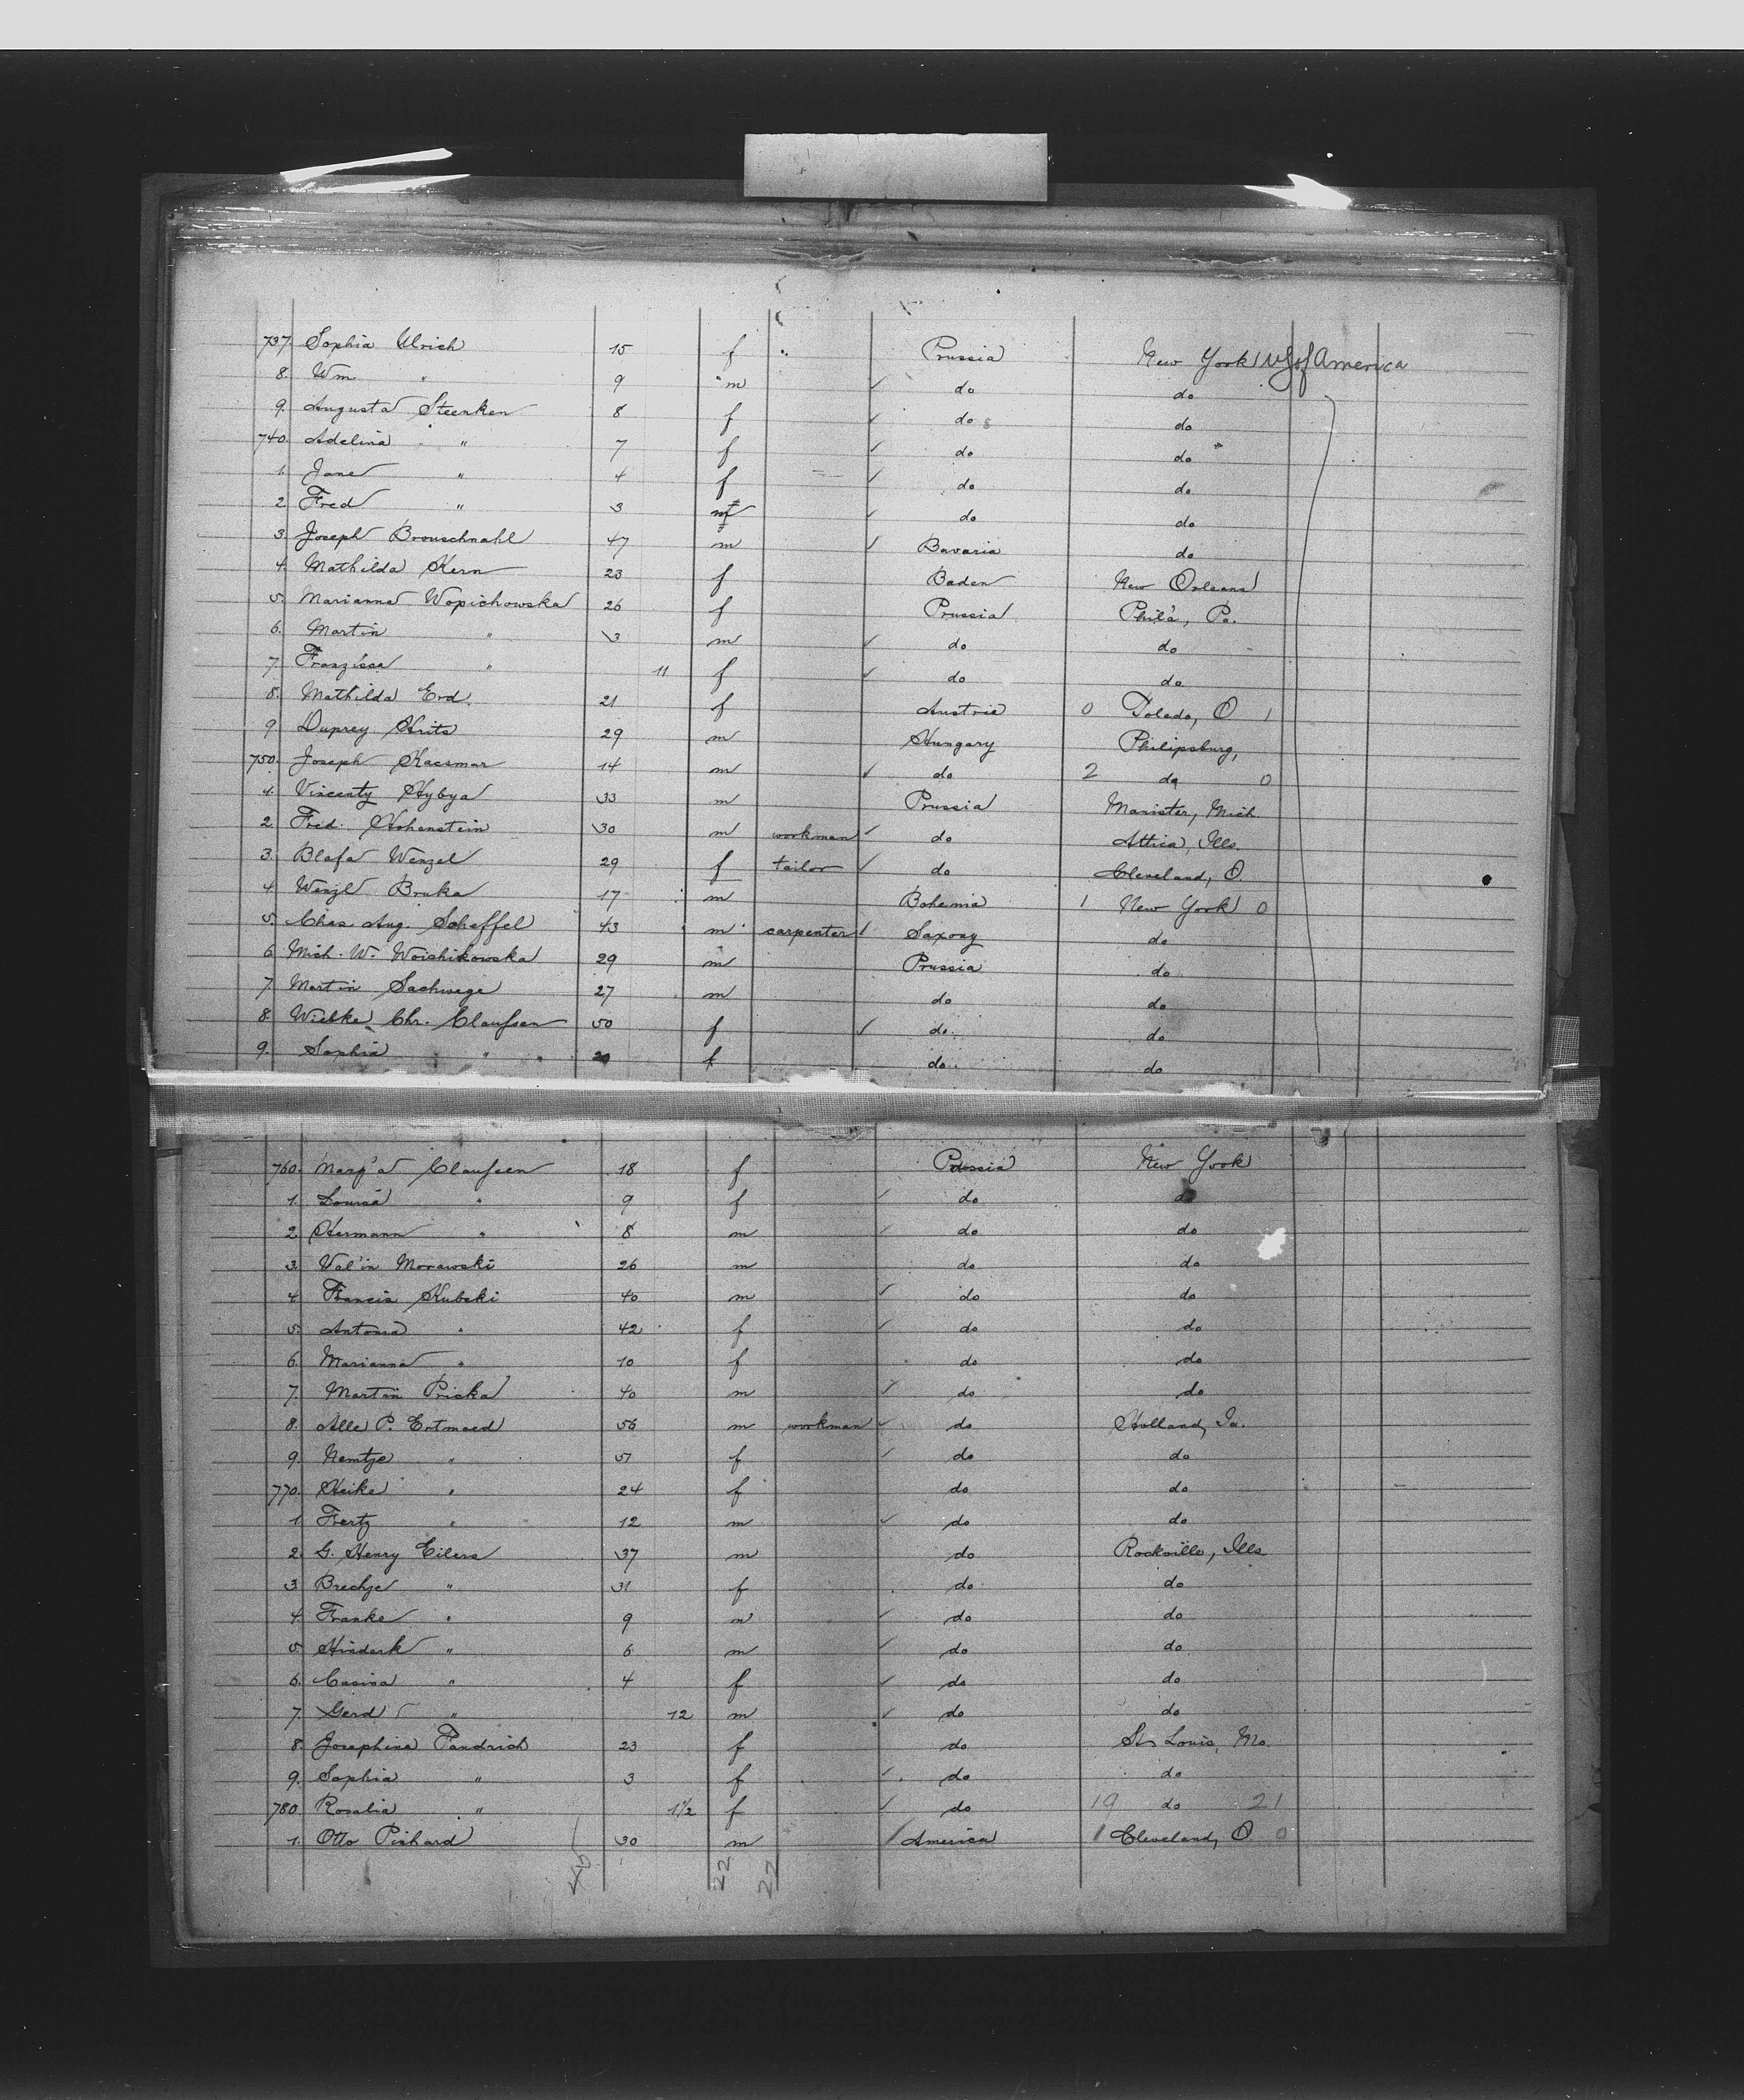 737. Sophia Ulrich 15 f " Prussia New York U S of America
8. Wm " 9 m do do
9. Augusta Steenken 8 f do do
740. Adelina " 7 f do do
1. Jane " 4 f do do
2 Fred " 3 m do do
3. Joseph Brouschnahl 47 m Bavaria do
4. Mathilda Kern 23 f Baden New Orleans
5. Marianna Wopichowska 26 f Prussia Phil'a, Pa.
6. Martin " 3 m do do
7. Franzisca " 11 f do do
8. Mathilda Erd. 21 f Austria 0 Toledo, O 1
9 Duprey Hrits 29 m Hungary Philipsburg,
750. Joseph Kacsmar 14 m do 2 do 0
1. Vincenty Hybya 33 m Prussia Manister, Mich.
2. Fred. Hohenstein 30 m workman do Attica, Ills.
3. Blafa Wenzel 29 f tailor do Cleveland, O.
4. Wenzl Bruka 17 m Bohemia 1 New York 0
5. Chas Aug. Scheffel 43 m carpenter Saxony do
6. Mich. W. Woichikowska 29 m Prussia do
7. Martin Sachwege 27 m do do
8. Wiebke Chr. Claufsen 50 f do. do
9. Sophia " 20 f do. do
760. Marg'a Claufsen 18 f Prussia New York
1. Louisa " 9 f do do
2 Hermann " 8 m do do
3. Val'in Morawski 26 m do do
4 Francis Kubski 40 m do do
5. Antonia " 42 f do do
6. Marianna " 10 f do do
7. Martin Pricka 40 m do do
8. Alle P. Ertmoed 56 m workman do Holland, Ia.
9 Nemtje " 51 f do do
770. Heike " 24 f do do
1 Fertz " 12 m do do
2. G. Henry Eilers 37 m do Rockville, Ills
3 Brechje " 31 f do do
4. Franke " 9 m do do
5. Hinderk " 6 m do do
6. Casina " 4 f do do
7. Gerd " 12 m do do
8. Josephina Pandrich 23 f do St Louis, Mo.
9. Sophia " 3 f do do
780. Rosalia " 1 1/2 f do 19 do 21
1. Otto Pichard 30 m America 1 Cleveland, O 0
22 22